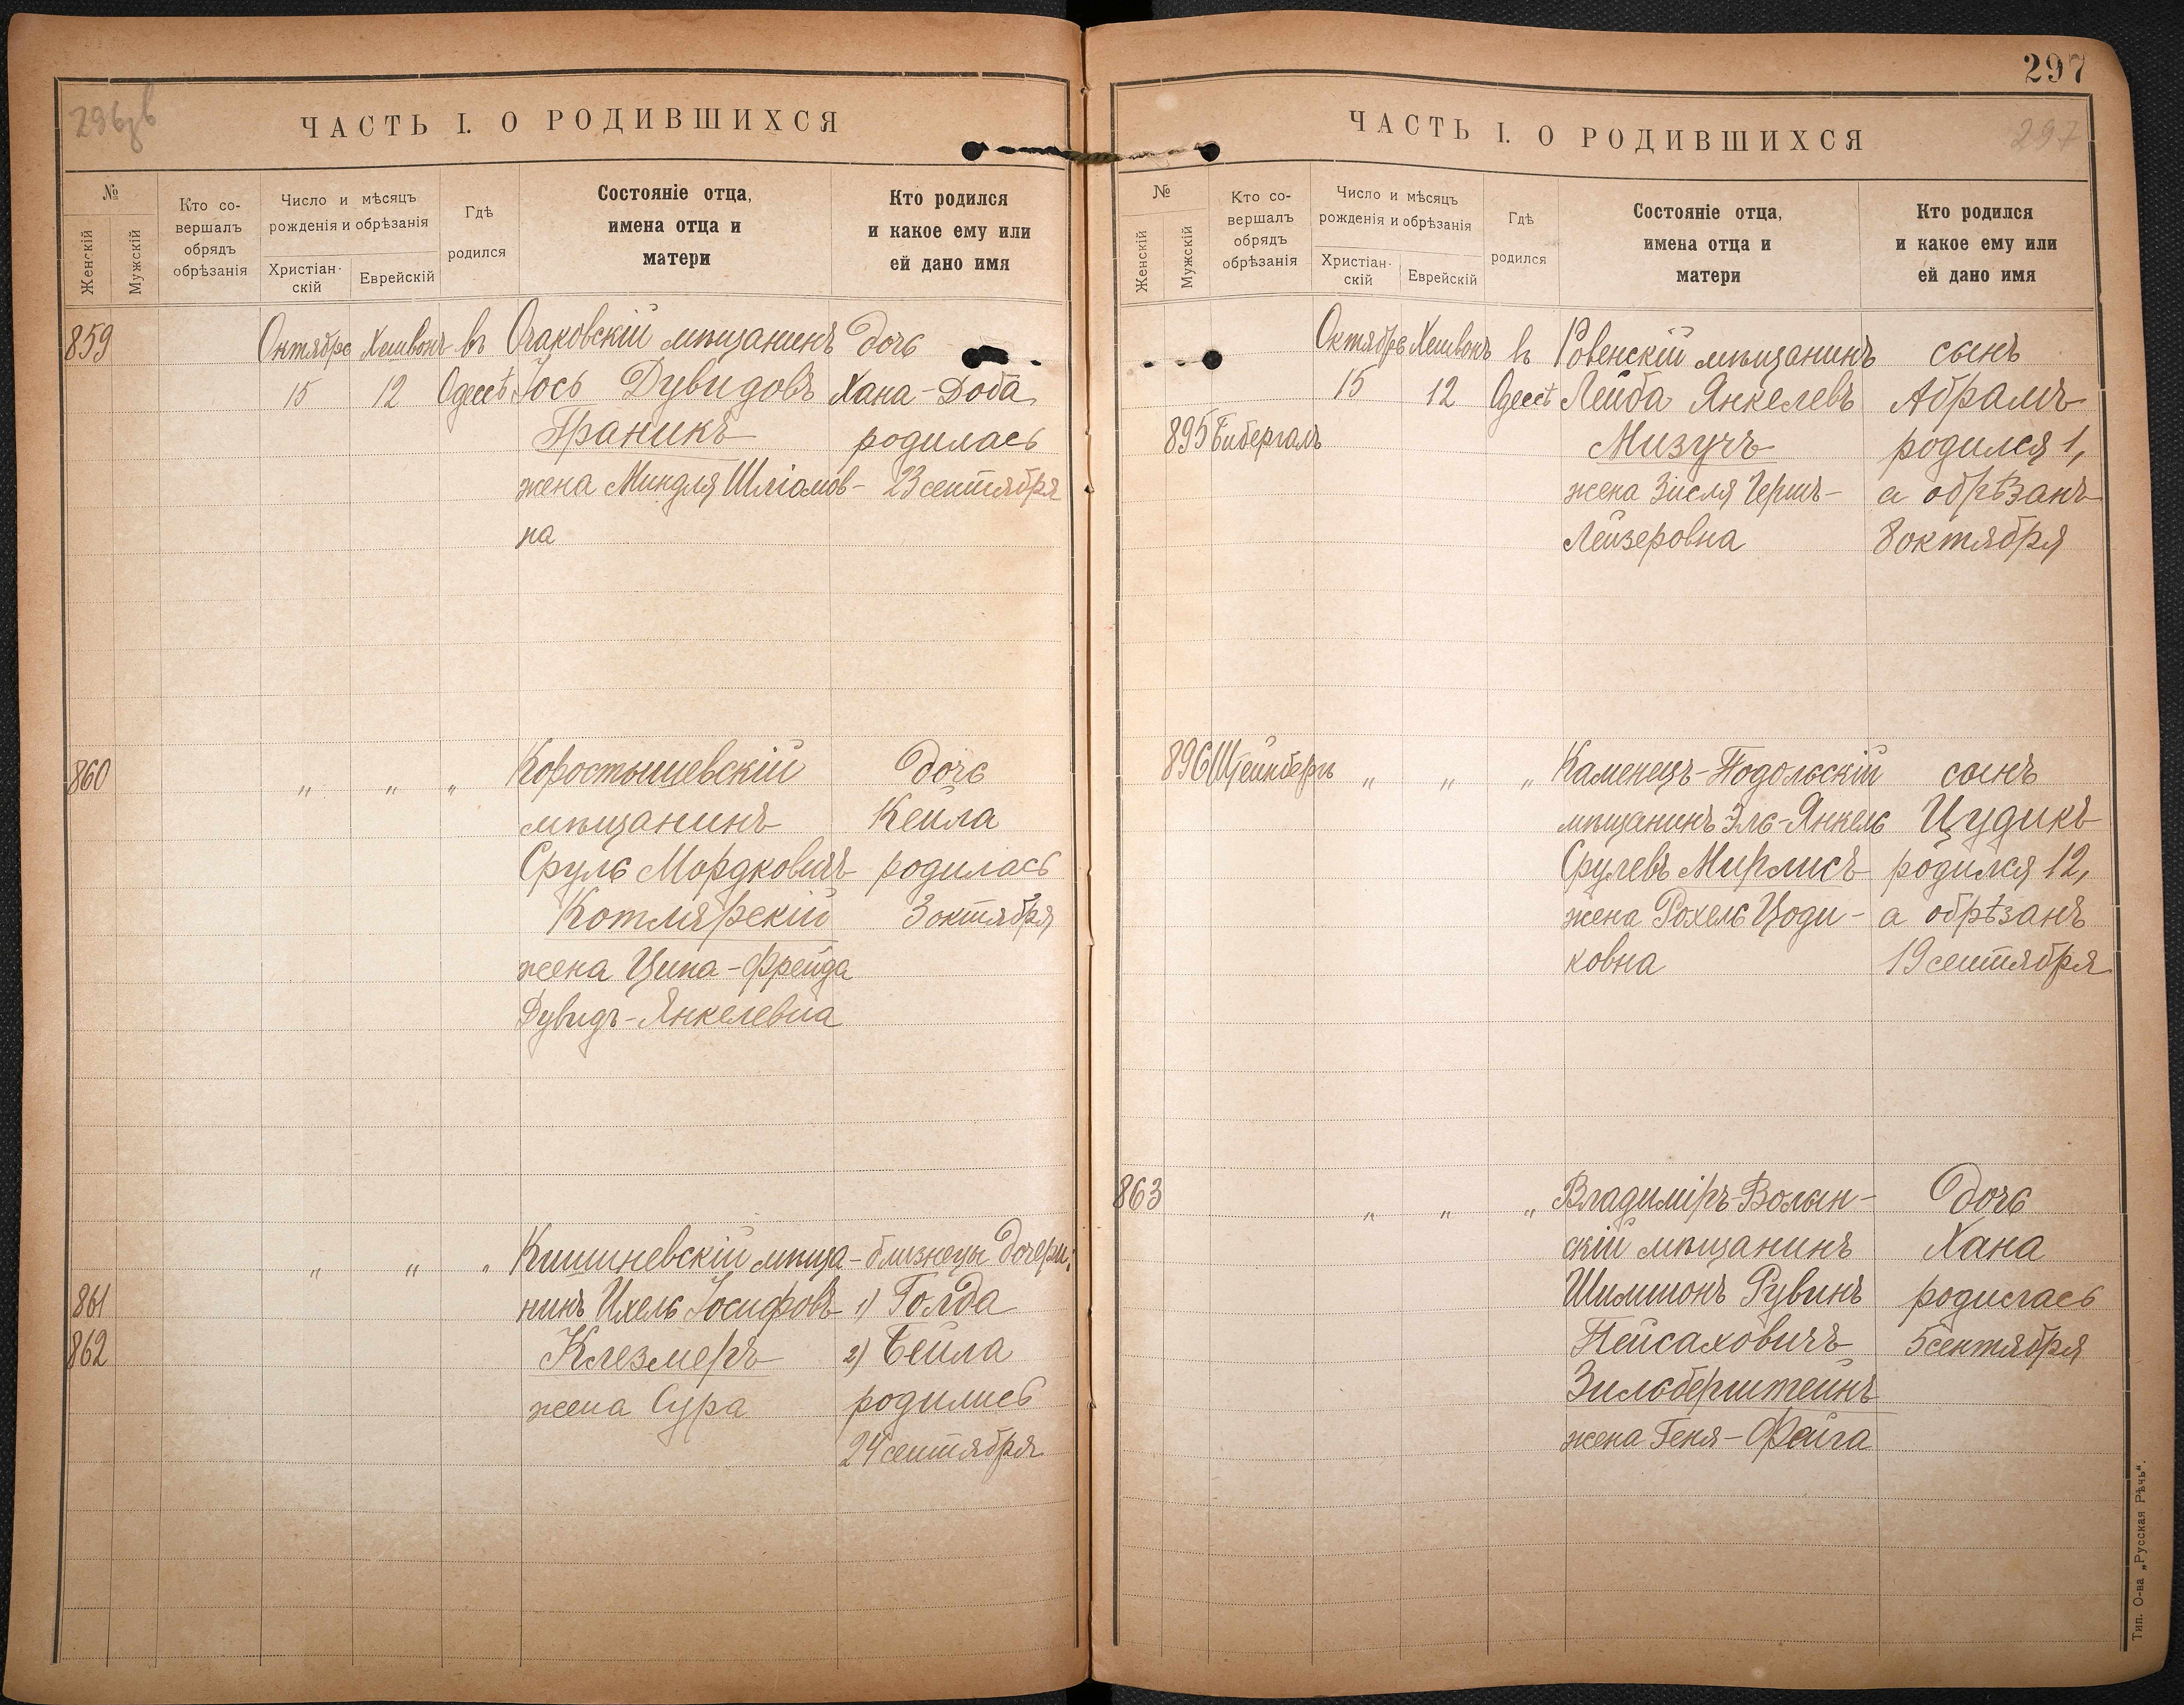 296об
ЧАСТЬ I. О РОДИВШИХСЯ
№
Женскій
Мужскій
Кто со-
вершалъ
обрядъ
обрѣзанія
Число и мѣсяцъ
рожденія и обрѣзанія
Христіан-
скій
Еврейскій
Гдѣ
родился
Состояніе отца,
имена отца и
матери
Кто родился
и какое ему или
ей дано имя
859 Октябрь Хешвонъ въ Очаковскій мѣщанинъ дочь
15 12 Одессѣ Іось Дувидовъ Хана-Доба
Граникъ родилась
жена Миндля Шліомов- 23 сентября
на
860 " " " Коростышевскій дочь
мѣщанинъ Кейла
Сруль Мордковичъ родилась
Котлярскій 3 октября
жена Ципа-Фрейда
Дувидъ-Янкелевна
" " " Кишиневскій мѣща- близнецы дочери:
861 нинъ Ихель Іосифовъ 1) Голда
862 Клезмеръ 2) Бейла
жена Сура родились
24 сентября
297
ЧАСТЬ I. О РОДИВШИХСЯ
297
№
Женскій
Мужскій
Кто со-
вершалъ
обрядъ
обрѣзанія
Число и мѣсяцъ
рожденія и обрѣзанія
Христіан-
скій
Еврейскій
Гдѣ
родился
Состояніе отца,
имена отца и
матери
Кто родился
и какое ему или
ей дано имя
Октябрь Хешвонъ въ Ровенскій мѣщанинъ сынъ
15 12 Одессѣ Лейба Янкелевъ Абрамъ
895 Бибергалъ Мизучъ родился 1,
жена Зисля Герш- а обрѣзанъ
Лейзеровна 8 октября
896 Штейнбергъ " " " Каменецъ-Подольскій сынъ
мѣщанинъ Эль-Янкель Цудикъ
Срулевъ Мирлисъ родился 12,
жена Рохель Цоди- а обрѣзанъ
ковна 19 сентября
863 " " " Владиміръ-Волын- дочь
скій мѣщанинъ Хана
Шимшонъ Рувинъ родилась
Пейсаховичъ 5 сентября
Зильберштейнъ
жена Геня-Фейга
Тип. О-ва „Русская Рѣчь“.